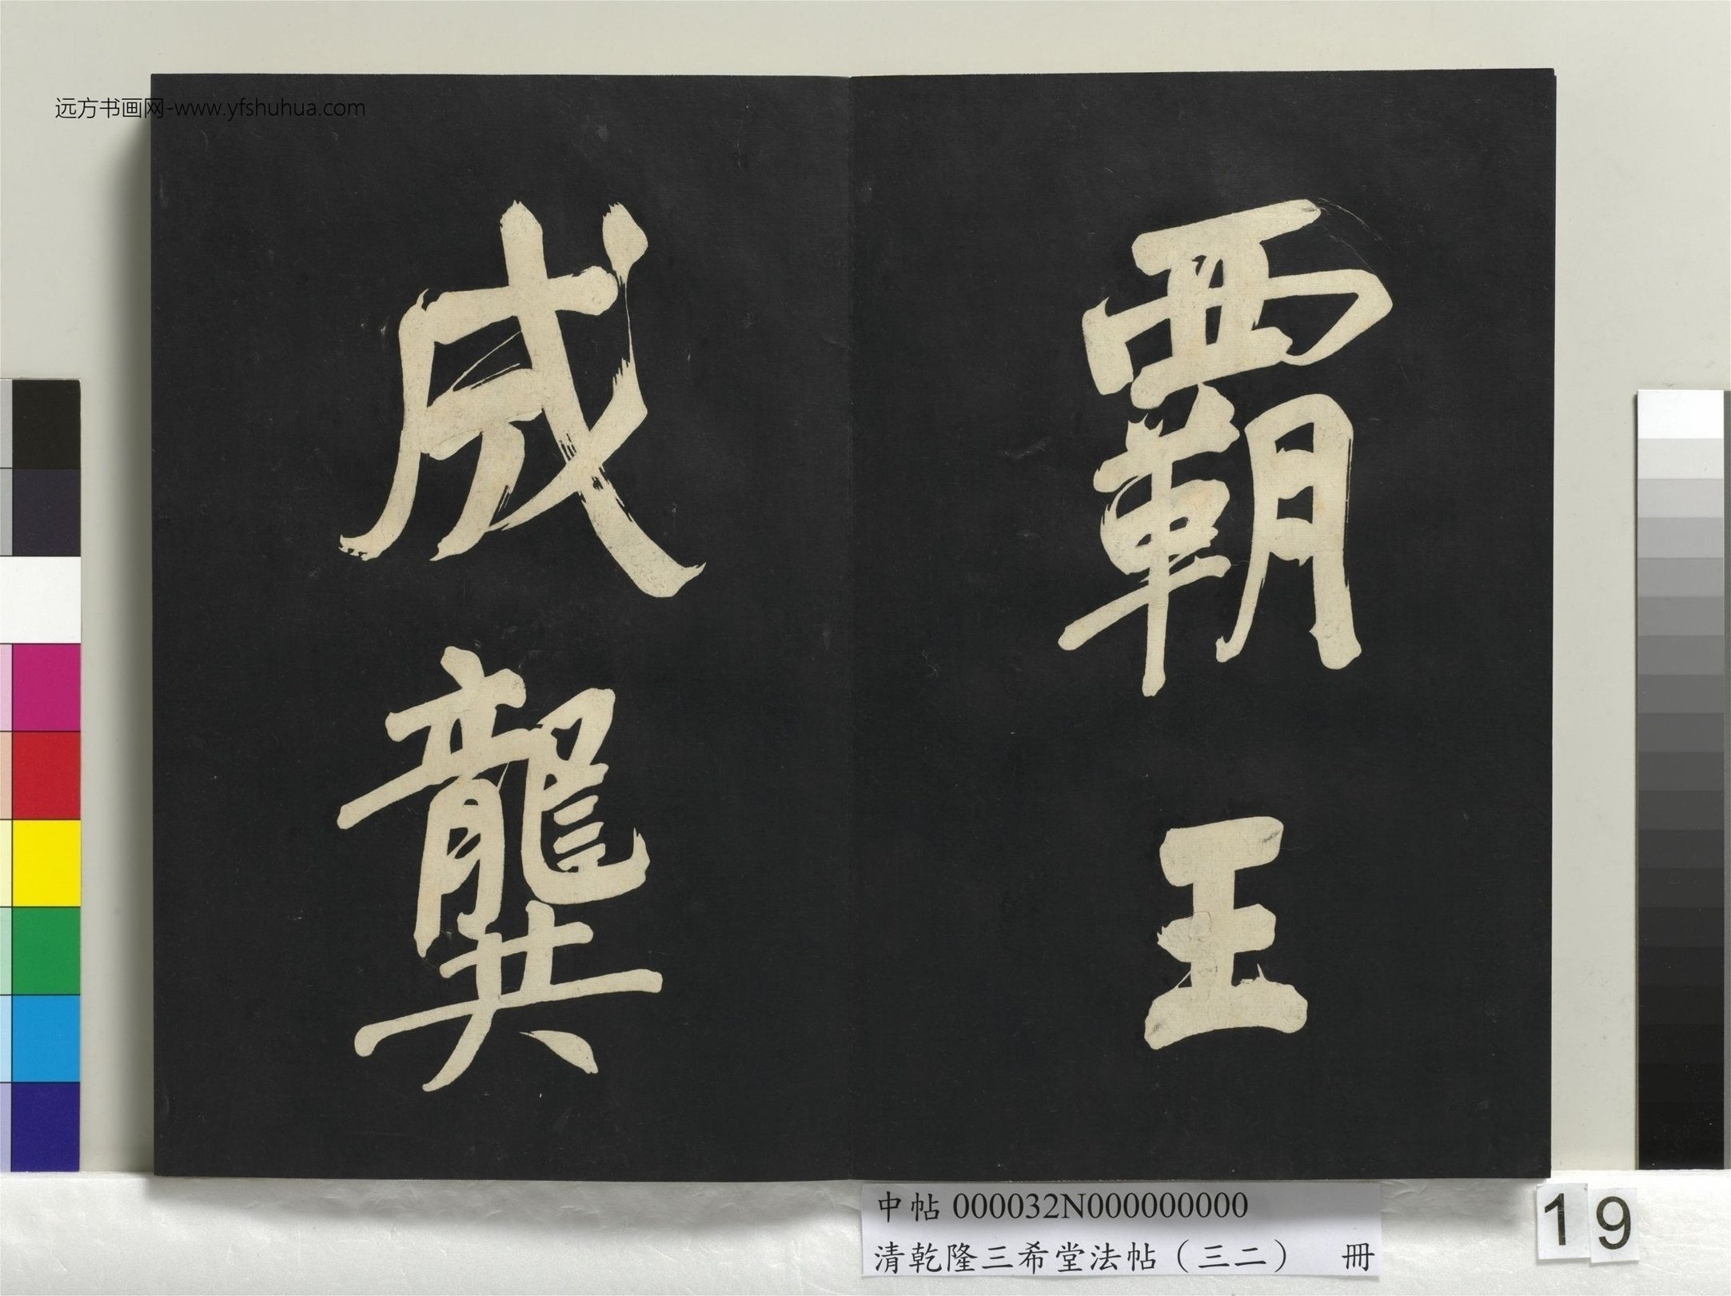 远方书画网-www.yfshuhua.com
霸王
成龔
中帖 000032N000000000
清乾隆三希堂法帖（三二） 冊
19